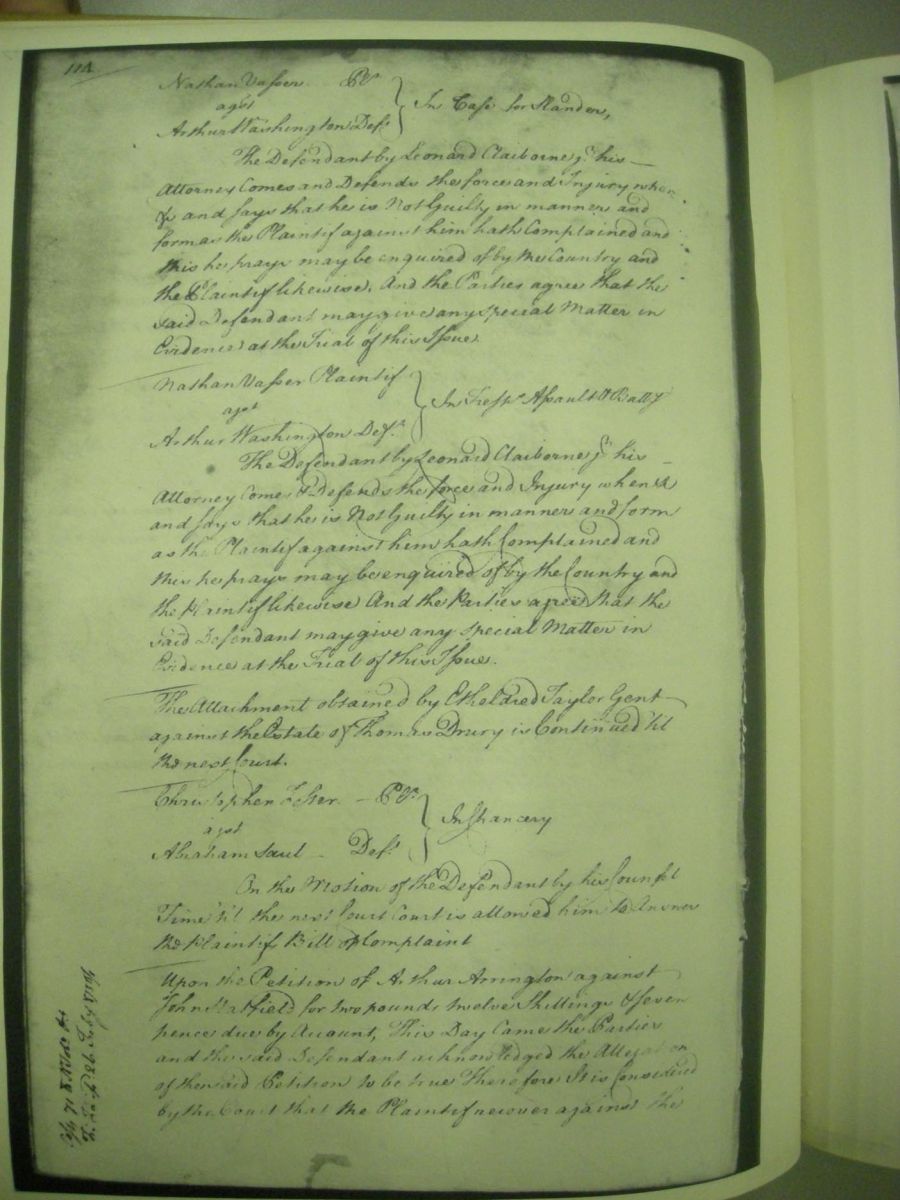 114
Nathan Vasser Plt
agst
Arthur Washington Deft
In Case for Slander,
The Defendant by Leonard Claiborne jr his
Attorney Comes and Defends the force and Injury when
&c and says that he is Not Guilty in manner and
form as the Plaintif against him hath Complained and
this he prays may be enquired of by the Country and
the Plaintif likewise. And the Parties agree that the
said Defendant may give any special Matter in
Evidence at the Trial of this Issue
Nathan Vasser Plaintif
agst
Arthur Washington Deft
In Tresps Assault & Batty
The Defendant by Leonard Claiborne jr his
Attorney Comes & Defends the force and Injury when &c
and says that he is Not Guilty in manner and form
as the Plaintif against him hath Complained and
this he prays may be enquired of by the Country and
the Plaintif likewise And the Parties agree that the
said Defendant may give any special Matter in
Evidence at the Trial of this Issue.
The Attachment obtained by Etheldred Taylor Gent
against the Estate of Thomas Drury is Continued 'til
the next Court.
Christopher Plt
agst
Abraham Saul Deft
In Chancery
On the Motion of the Defendant by his Counsel
Time 'til the next Court Court is allowed him to Answer
the Plaintifs Bill of Complaint
Upon the Petition of Arthur Arrington against
John Hatfield for two pounds twelve Shillings & seven
pence due by Account, This Day Came the Parties
and the said Defendant acknowledged the Allegation
of the said Petition to be true Therefore It is Considered
by the Court that the Plaintif recover against the